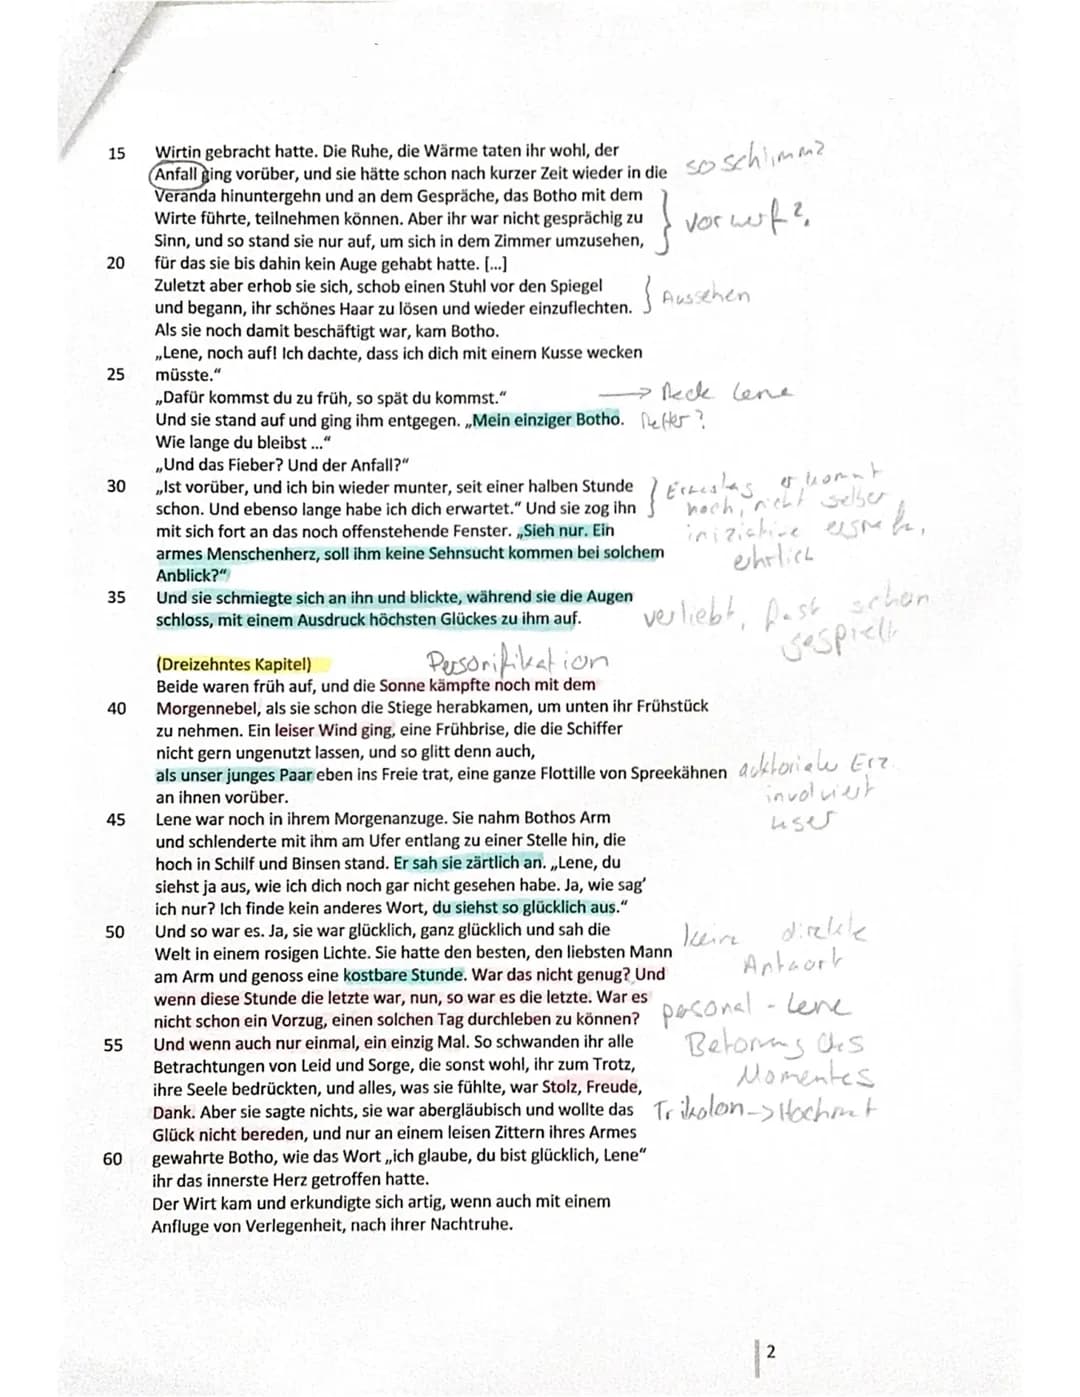 15 Wirtin gebracht hatte. Die Ruhe, die Wärme taten ihr wohl, der
Anfall ging vorüber, und sie hätte schon nach kurzer Zeit wieder in die
so schlimm?
Veranda hinuntergehn und an dem Gespräche, das Botho mit dem
Wirte führte, teilnehmen können. Aber ihr war nicht gesprächig zu
vorwurf?
Sinn, und so stand sie nur auf, um sich in dem Zimmer umzusehen,
20 für das sie bis dahin kein Auge gehabt hatte. [...]
Zuletzt aber erhob sie sich, schob einen Stuhl vor den Spiegel
und begann, ihr schönes Haar zu lösen und wieder einzuflechten.
Aussehen
Als sie noch damit beschäftigt war, kam Botho.
„Lene, noch auf! Ich dachte, dass ich dich mit einem Kusse wecken
25 müsste.“
„Dafür kommst du zu früh, so spät du kommst.“
→ Lene
Und sie stand auf und ging ihm entgegen. „Mein einziger Botho.
Wie lange du bleibst ...“
„Und das Fieber? Und der Anfall?“
30 „Ist vorüber, und ich bin wieder munter, seit einer halben Stunde
er kommt
schon. Und ebenso lange habe ich dich erwartet.“ Und sie zog ihn
hoch, nicht selber
mit sich fort an das noch offenstehende Fenster. „Sieh nur. Ein
armes Menschenherz, soll ihm keine Sehnsucht kommen bei solchem
ehrlich
Anblick?“
35 Und sie schmiegte sich an ihn und blickte, während sie die Augen
schloss, mit einem Ausdruck höchsten Glückes zu ihm auf.
verliebt, fast schon
gespielt
(Dreizehntes Kapitel)
Personifikation
Beide waren früh auf, und die Sonne kämpfte noch mit dem
40 Morgennebel, als sie schon die Stiege herabkamen, um unten ihr Frühstück
zu nehmen. Ein leiser Wind ging, eine Frühbrise, die die Schiffer
nicht gern ungenutzt lassen, und so glitt denn auch,
als unser junges Paar eben ins Freie trat, eine ganze Flottille von Spreekähnen
Erz.
an ihnen vorüber.
involviert
45 Lene war noch in ihrem Morgenanzuge. Sie nahm Bothos Arm
user
und schlenderte mit ihm am Ufer entlang zu einer Stelle hin, die
hoch in Schilf und Binsen stand. Er sah sie zärtlich an. „Lene, du
siehst ja aus, wie ich dich noch gar nicht gesehen habe. Ja, wie sag’
ich nur? Ich finde kein anderes Wort, du siehst so glücklich aus.“
50 Und so war es. Ja, sie war glücklich, ganz glücklich und sah die
keine direkte
Welt in einem rosigen Lichte. Sie hatte den besten, den liebsten Mann
Antwort
am Arm und genoss eine kostbare Stunde. War das nicht genug? Und
wenn diese Stunde die letzte war, nun, so war es die letzte. War es
nicht schon ein Vorzug, einen solchen Tag durchleben zu können?
personal - Lene
55 Und wenn auch nur einmal, ein einzig Mal. So schwanden ihr alle
Betonung des
Betrachtungen von Leid und Sorge, die sonst wohl, ihr zum Trotz,
Momentes
ihre Seele bedrückten, und alles, was sie fühlte, war Stolz, Freude,
Dank. Aber sie sagte nichts, sie war abergläubisch und wollte das
Trikolon -> Hochmut
Glück nicht bereden, und nur an einem leisen Zittern ihres Armes
60 gewahrte Botho, wie das Wort „ich glaube, du bist glücklich, Lene“
ihr das innerste Herz getroffen hatte.
Der Wirt kam und erkundigte sich artig, wenn auch mit einem
Anfluge von Verlegenheit, nach ihrer Nachtruhe.
2